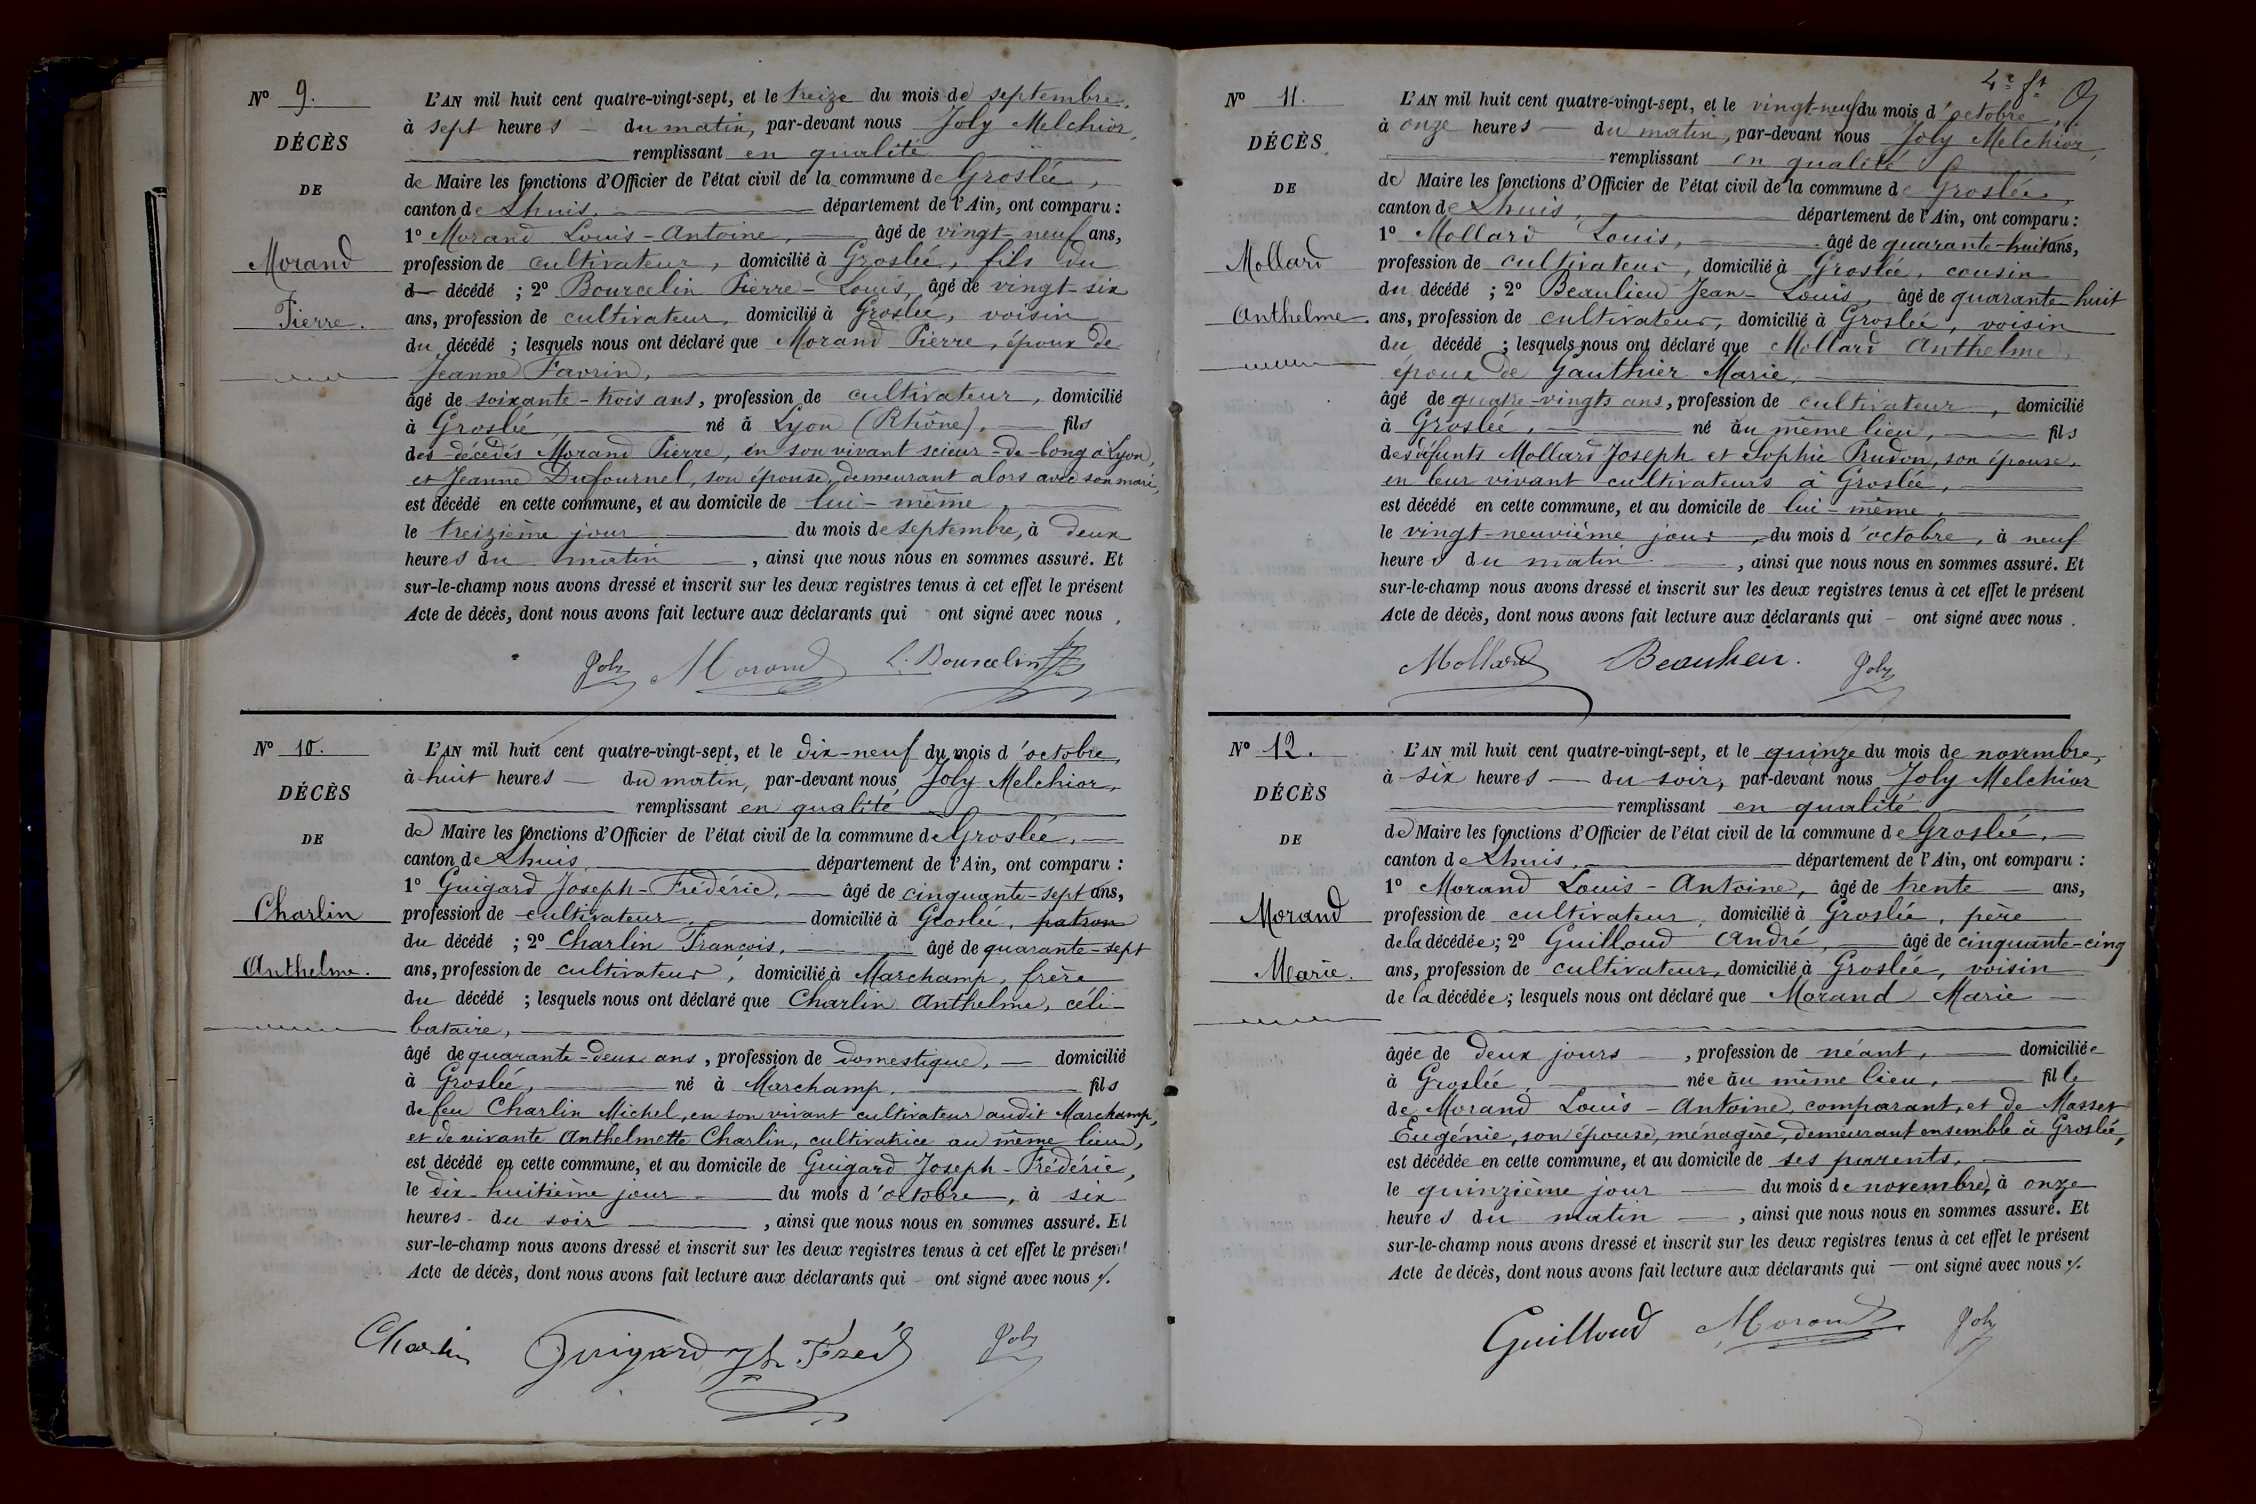 Nº 9.
DÉCÈS
DE
Morand
Pierre.
L'AN mil huit cent quatre-vingt-sept, et le treize du mois de septembre,
à sept heures du matin, par-devant nous Joly Melchior,
remplissant en qualité
de Maire les fonctions d'Officier de l'état civil de la commune de Groslée,
canton de Lhuis, département de l'Ain, ont comparu :
1º Morand Louis-Antoine, âgé de vingt-neuf ans,
profession de cultivateur, domicilié à Groslée, fils du
d décédé ; 2º Bourcelin Pierre-Louis, âgé de vingt-six
ans, profession de cultivateur, domicilié à Groslée, voisin
du décédé ; lesquels nous ont déclaré que Morand Pierre, époux de
Jeanne Favrin,
âgé de soixante-trois ans, profession de cultivateur, domicilié
à Groslée, né à Lyon (Rhône), fils
des décédés Morand Pierre, en son vivant scieur-de-long à Lyon,
et Jeanne Dufournel, son épouse, demeurant alors avec son mari,
est décédé en cette commune, et au domicile de lui-même,
le treizième jour du mois de septembre, à deux
heures du matin, ainsi que nous nous en sommes assuré. Et
sur-le-champ nous avons dressé et inscrit sur les deux registres tenus à cet effet le présent
Acte de décès, dont nous avons fait lecture aux déclarants qui ont signé avec nous.
Joly Morand L. Bourcelin
Nº 10.
DÉCÈS
DE
Charlin
Anthelme.
L'AN mil huit cent quatre-vingt-sept, et le dix-neuf du mois d'octobre,
à huit heures du matin, par-devant nous Joly Melchior,
remplissant en qualité
de Maire les fonctions d'Officier de l'état civil de la commune de Groslée,
canton de Lhuis, département de l'Ain, ont comparu :
1º Guigard Joseph-Frédéric, âgé de cinquante-sept ans,
profession de cultivateur, domicilié à Groslée, patron
du décédé ; 2º Charlin François, âgé de quarante-sept
ans, profession de cultivateur, domicilié à Marchamp, frère
du décédé ; lesquels nous ont déclaré que Charlin Anthelme, céli-
bataire,
âgé de quarante-deux ans, profession de domestique, domicilié
à Groslée, né à Marchamp, fils
de feu Charlin Michel, en son vivant cultivateur audit Marchamp,
et de vivante Anthelmette Charlin, cultivatrice au même lieu,
est décédé en cette commune, et au domicile de Guigard Joseph-Frédéric,
le dix-huitième jour du mois d'octobre, à six
heures du soir, ainsi que nous nous en sommes assuré. Et
sur-le-champ nous avons dressé et inscrit sur les deux registres tenus à cet effet le présent
Acte de décès, dont nous avons fait lecture aux déclarants qui ont signé avec nous ./.
Charlin Guigard Jh Fréd Joly
4e ft
Nº 11.
DÉCÈS
DE
Mollard
Anthelme.
L'AN mil huit cent quatre-vingt-sept, et le vingt-neuf du mois d'octobre,
à onze heures du matin, par-devant nous Joly Melchior,
remplissant en qualité
de Maire les fonctions d'Officier de l'état civil de la commune de Groslée,
canton de Lhuis, département de l'Ain, ont comparu :
1º Mollard Louis, âgé de quarante-huit ans,
profession de cultivateur, domicilié à Groslée, cousin
du décédé ; 2º Beaulieu Jean-Louis, âgé de quarante-huit
ans, profession de cultivateur, domicilié à Groslée, voisin
du décédé ; lesquels nous ont déclaré que Mollard Anthelme,
époux de Gauthier Marie,
âgé de quatre-vingts ans, profession de cultivateur, domicilié
à Groslée, né au même lieu, fils
des défunts Mollard Joseph et Sophie Prudon, son épouse,
en leur vivant cultivateurs à Groslée,
est décédé en cette commune, et au domicile de lui-même,
le vingt-neuvième jour, du mois d'octobre, à neuf
heures du matin, ainsi que nous nous en sommes assuré. Et
sur-le-champ nous avons dressé et inscrit sur les deux registres tenus à cet effet le présent
Acte de décès, dont nous avons fait lecture aux déclarants qui ont signé avec nous.
Mollard Beaulieu. Joly
Nº 12.
DÉCÈS
DE
Morand
Marie.
L'AN mil huit cent quatre-vingt-sept, et le quinze du mois de novembre,
à six heures du soir, par-devant nous Joly Melchior
remplissant en qualité
de Maire les fonctions d'Officier de l'état civil de la commune de Groslée,
canton de Lhuis, département de l'Ain, ont comparu :
1º Morand Louis-Antoine, âgé de trente ans,
profession de cultivateur, domicilié à Groslée, père
de la décédée ; 2º Guilloud André, âgé de cinquante-cinq
ans, profession de cultivateur, domicilié à Groslée, voisin
de la décédée ; lesquels nous ont déclaré que Morand Marie
âgée de deux jours, profession de néant, domiciliée
à Groslée, née au même lieu, fille
de Morand Louis-Antoine, comparant, et de Masset
Eugénie, son épouse, ménagère, demeurant ensemble à Groslée,
est décédée en cette commune, et au domicile de ses parents,
le quinzième jour du mois de novembre, à onze
heures du matin, ainsi que nous nous en sommes assuré. Et
sur-le-champ nous avons dressé et inscrit sur les deux registres tenus à cet effet le présent
Acte de décès, dont nous avons fait lecture aux déclarants qui ont signé avec nous ./.
Guilloud Morand Joly